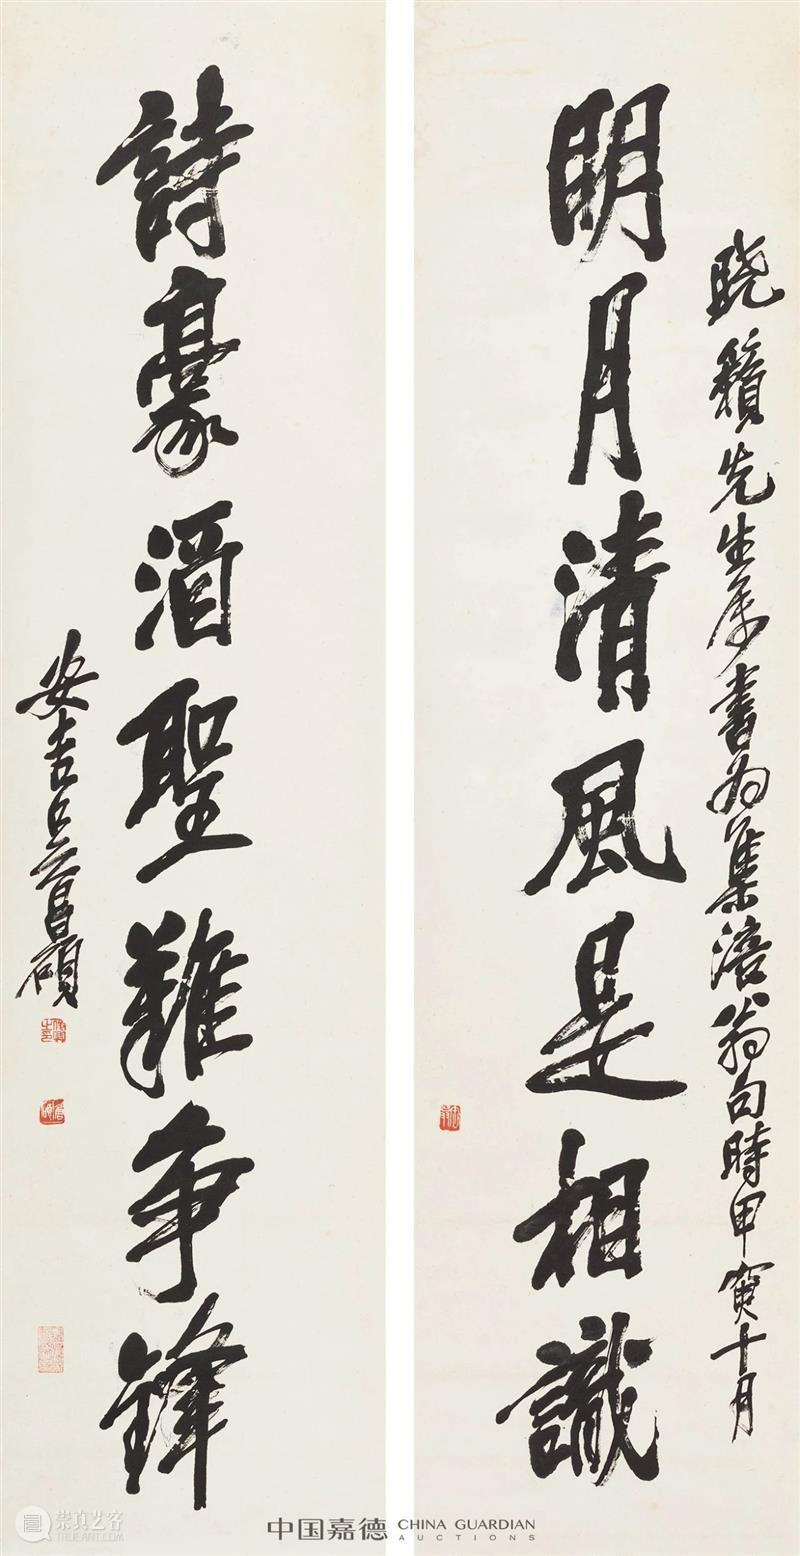 晓籟先生属書為集涪翁句時甲寅十月
明月清風是相識
詩豪酒聖難争鋒
安吉吴昌碩
中国嘉德 CHINA GUARDIAN
AUCTIONS
崇真艺客